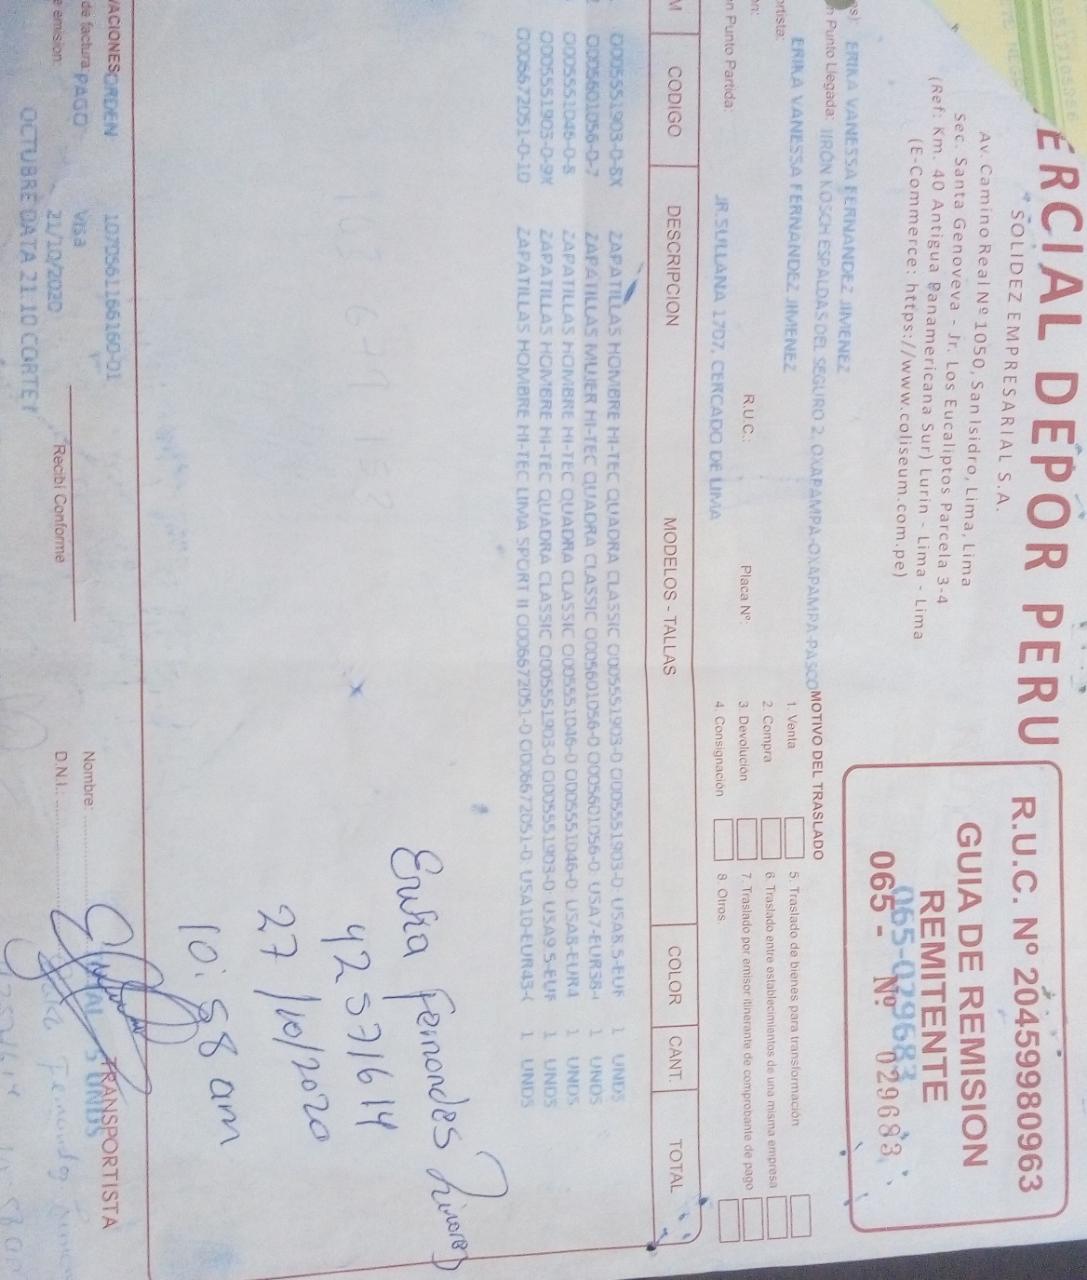 ERCIAL DEPOR PERU
SOLIDEZ EMPRESARIAL S.A.
Av. Camino Real Nº 1050, San Isidro, Lima, Lima
Sec. Santa Genoveva - Jr. Los Eucaliptos Parcela 3-4
(Ref: Km. 40 Antigua Panamericana Sur) Lurin - Lima - Lima
(E-Commerce: https://www.coliseum.com.pe)
R.U.C. Nº 20459980963
GUIA DE REMISION
REMITENTE
065-029683
065- Nº 029683
es): ERIKA VANESSA FERNANDEZ JIMENEZ
n Punto Llegada: JIRÓN KOSCH ESPALDAS DEL SEGURO 2, OXAPAMPA-OXAPAMPA-PASCO
ERIKA VANESSA FERNANDEZ JIMENEZ
ortista:
on: R.U.C.: Placa Nº:
n Punto Partida: JR.SULLANA 1707, CERCADO DE LIMA
MOTIVO DEL TRASLADO
1. Venta
2. Compra
3. Devolución
4. Consignación
5. Traslado de bienes para transformación
6. Traslado entre establecimientos de una misma empresa
7. Traslado por emisor itinerante de comprobante de pago
8. Otros
M CODIGO DESCRIPCION MODELOS - TALLAS COLOR CANT. TOTAL
O005551903-0-8X ZAPATILLAS HOMBRE HI-TEC QUADRA CLASSIC O005551903-0 O005551903-0: USA8.5-EUR 1 UNDS
O005601056-0-7 ZAPATILLAS MUJER HI-TEC QUADRA CLASSIC O005601056-0 O005601056-0: USA7-EUR38-( 1 UNDS
O005551046-0-8 ZAPATILLAS HOMBRE HI-TEC QUADRA CLASSIC O005551046-0 O005551046-0: USA8-EUR4 1 UNDS
O005551903-0-9X ZAPATILLAS HOMBRE HI-TEC QUADRA CLASSIC O005551903-0 O005551903-0: USA9.5-EUR 1 UNDS
O006672051-0-10 ZAPATILLAS HOMBRE HI-TEC LIMA SPORT II O006672051-0 O006672051-0: USA10-EUR43-( 1 UNDS
Erika Fernandes Jimenez
42571614
27/10/2020
10:58 am
VACIONES ORDEN: 1070561166160-01
de factura PAGO Visa
e emision: 21/10/2020
OCTUBRE DATA 21.10 CORTE Y
Recibí Conforme
TRANSPORTISTA
5 UNDS
Nombre:
D.N.I.: